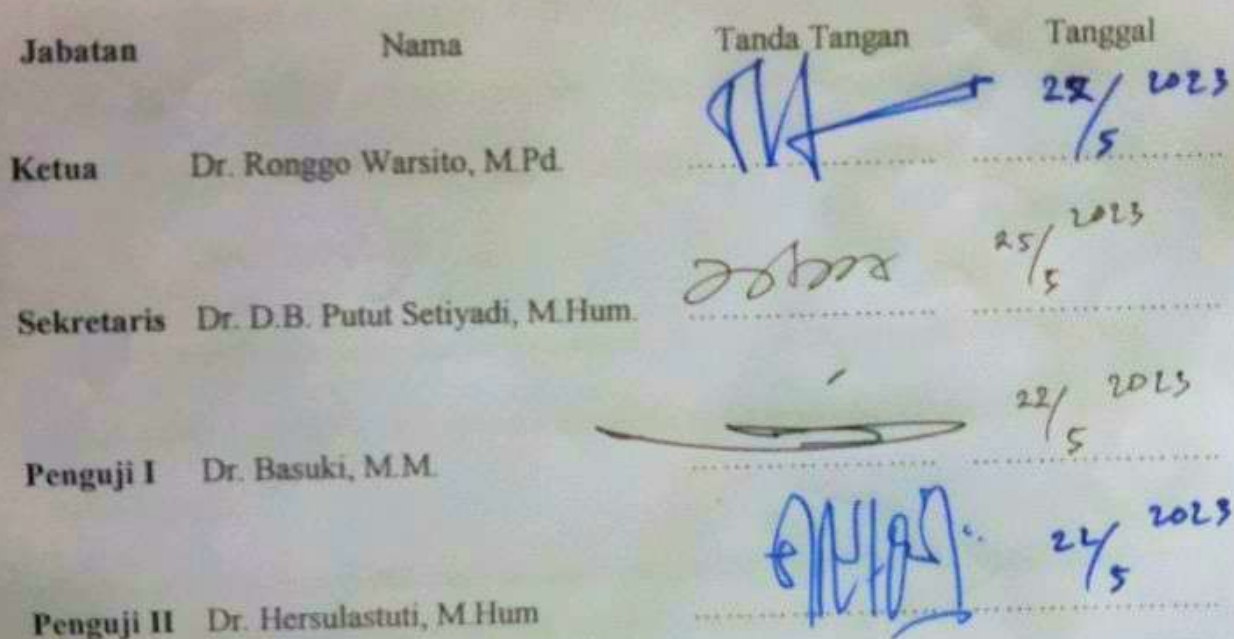 Jabatan Nama Tanda Tangan Tanggal
Ketua Dr. Ronggo Warsito, M.Pd. 2023
/5
Sekretaris Dr. D.B. Putut Setiyadi, M.Hum. 25/5 2023
Penguji I Dr. Basuki, M.M. 22/5 2023
Penguji II Dr. Hersulastuti, M.Hum 2023
/5